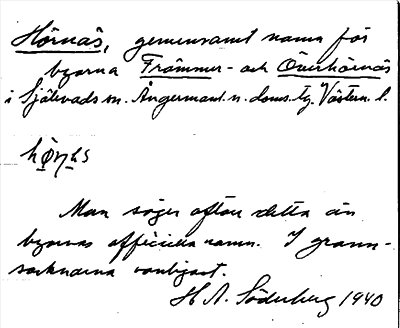 Hörnäs, gemensamt namn för
byarna Främmer- och Överhörnäs
i Själevads sn. Ångermanl. n. doms. tg. Västern. l.
Man säger oftare detta än
byarnas officiella namn. I grann-
socknarna vanligast.
H A. Söderberg 1940